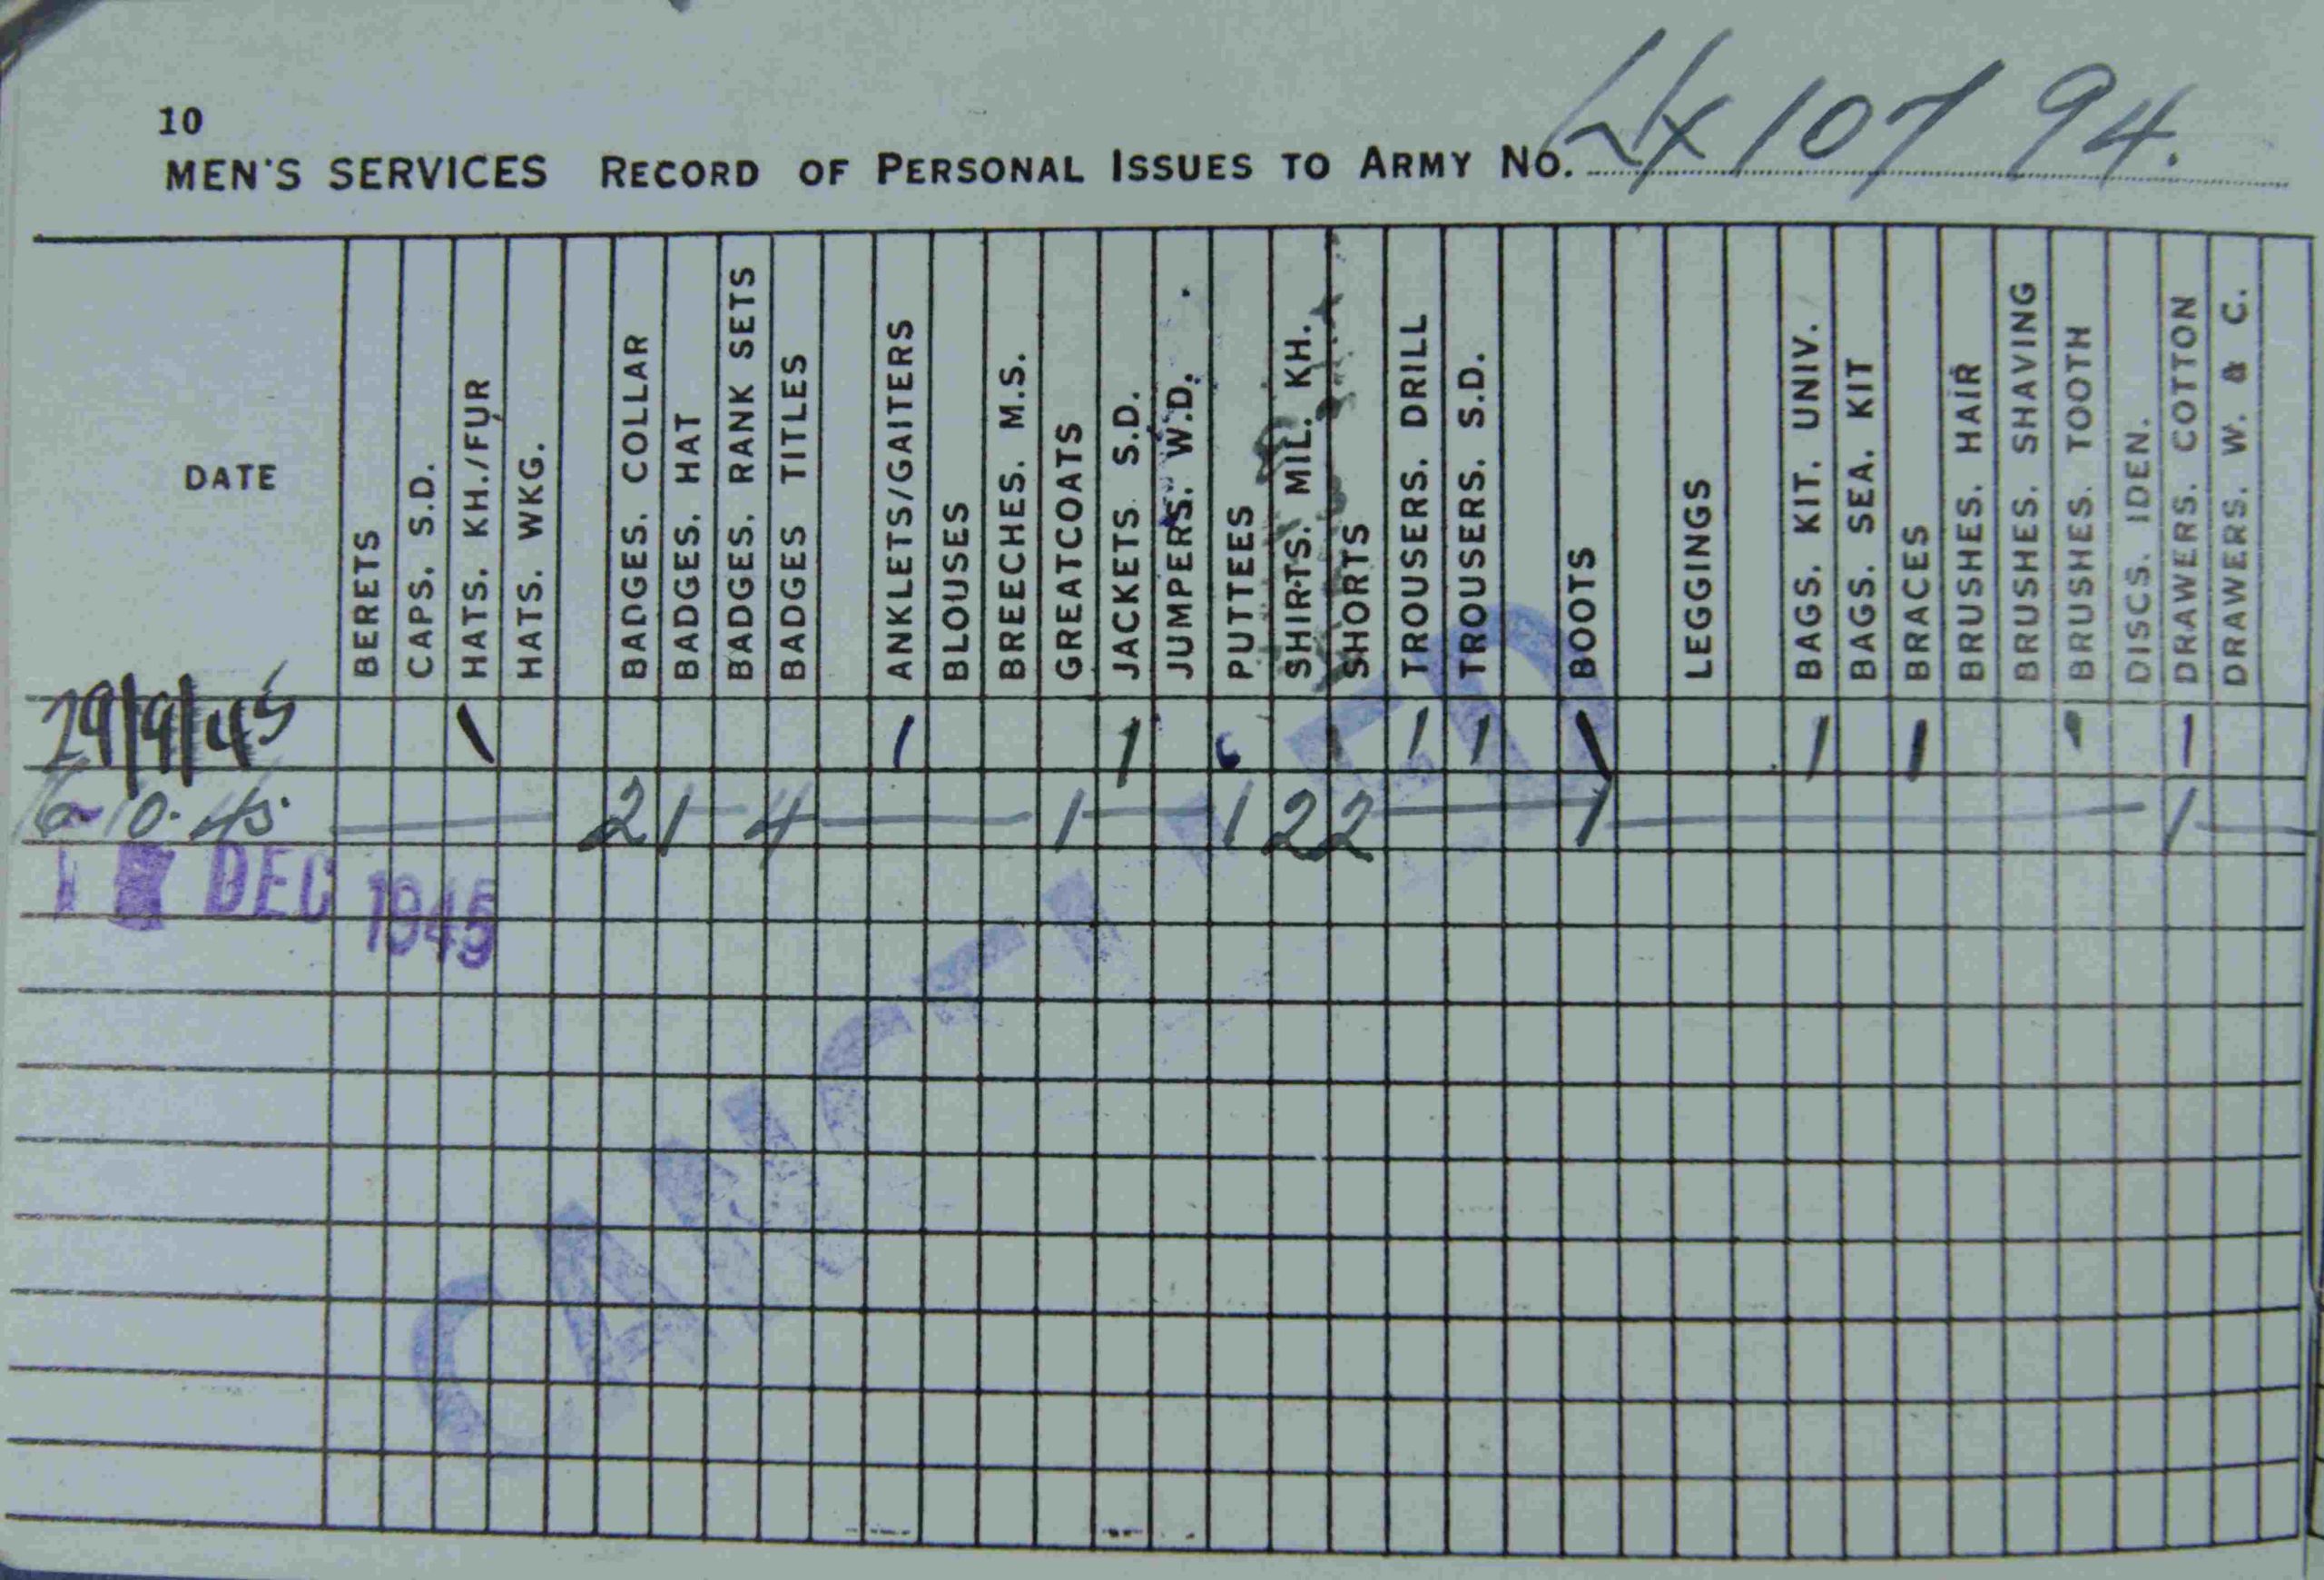 10
MEN'S SERVICES RECORD OF PERSONAL ISSUES TO ARMY NO. X10794.
DATE
BERETS
CAPS. S.D.
HATS. KH./FUR
HATS. WKG.
BADGES. COLLAR
BADGES. HAT
BADGES. RANK SETS
BADGES TITLES
ANKLETS/GAITERS
BLOUSES
BREECHES. M.S.
GREATCOATS
JACKETS. S.D.
JUMPERS. W.D.
PUTTEES
SHIRTS. MIL. KH.
SHORTS
TROUSERS. DRILL
TROUSERS. S.D.
BOOTS
LEGGINGS
BAGS. KIT. UNIV.
BAGS. SEA. KIT
BRACES
BRUSHES. HAIR
BRUSHES. SHAVING
BRUSHES. TOOTH
DISCS. IDEN.
DRAWERS. COTTON
DRAWERS. W. & C.
29/9/45 1 1 1 1 1 1 1 1 1
10.45. 2 1 4 1 1 2 2 1 1
DEC 1945